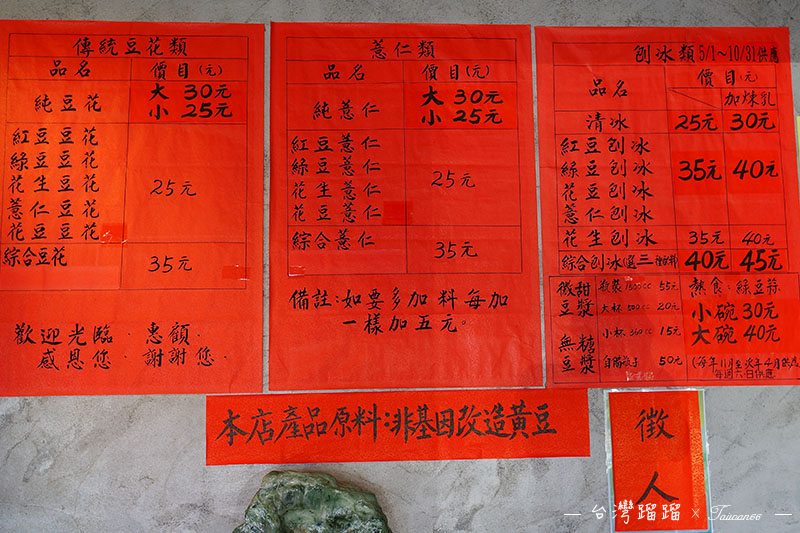 傳統豆花類
品名 價目(元)
純豆花 大 30元
小 25元
紅豆豆花
綠豆豆花
花生豆花 25元
薏仁豆花
花豆豆花
綜合豆花 35元
歡迎光臨．惠顧．
感恩您．謝謝您．
薏仁類
品名 價目(元)
純薏仁 大 30元
小 25元
紅豆薏仁
綠豆薏仁 25元
花生薏仁
花豆薏仁
綜合薏仁 35元
備註:如要多加料每加
一樣加五元。
刨冰類 5/1~10/31供應
品名 價目(元)
加煉乳
清冰 25元 30元
紅豆刨冰
綠豆刨冰 35元 40元
花豆刨冰
薏仁刨冰
花生刨冰 35元 40元
綜合刨冰(選三種配料) 40元 45元
微甜豆漿
無糖豆漿
軟裝1300cc 55元
大杯500cc 20元
小杯360cc 15元
自備瓶子 50元
熱食:綠豆蒜
小碗 30元
大碗 40元
(每年11月至次年4月供應
每週六.日供應
本店產品原料:非基因改造黃豆
徵人
台灣蹓蹓 × Taiwan66